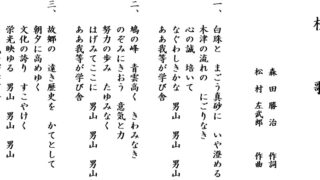 歌
森田勝治　作詞
松村左武郎　作曲
一、白珠と　まごう真砂に　いや澄める
木津の流れの　にごりなき
心の誠　培いて
なぐわしきかな　男山　男山　男山
ああ我等が学び舎
二、鳩の峰　青雲高く　きわみなき
のぞみにきおう　意気と力
努力の歩み　たゆみなく
はげみてここに　男山　男山　男山
ああ我等が学び舎
三、故郷の　遠き歴史を　かてとして
朝夕に高めゆく
文化の誇り　すこやけく
栄光映ゆる　男山　男山　男山